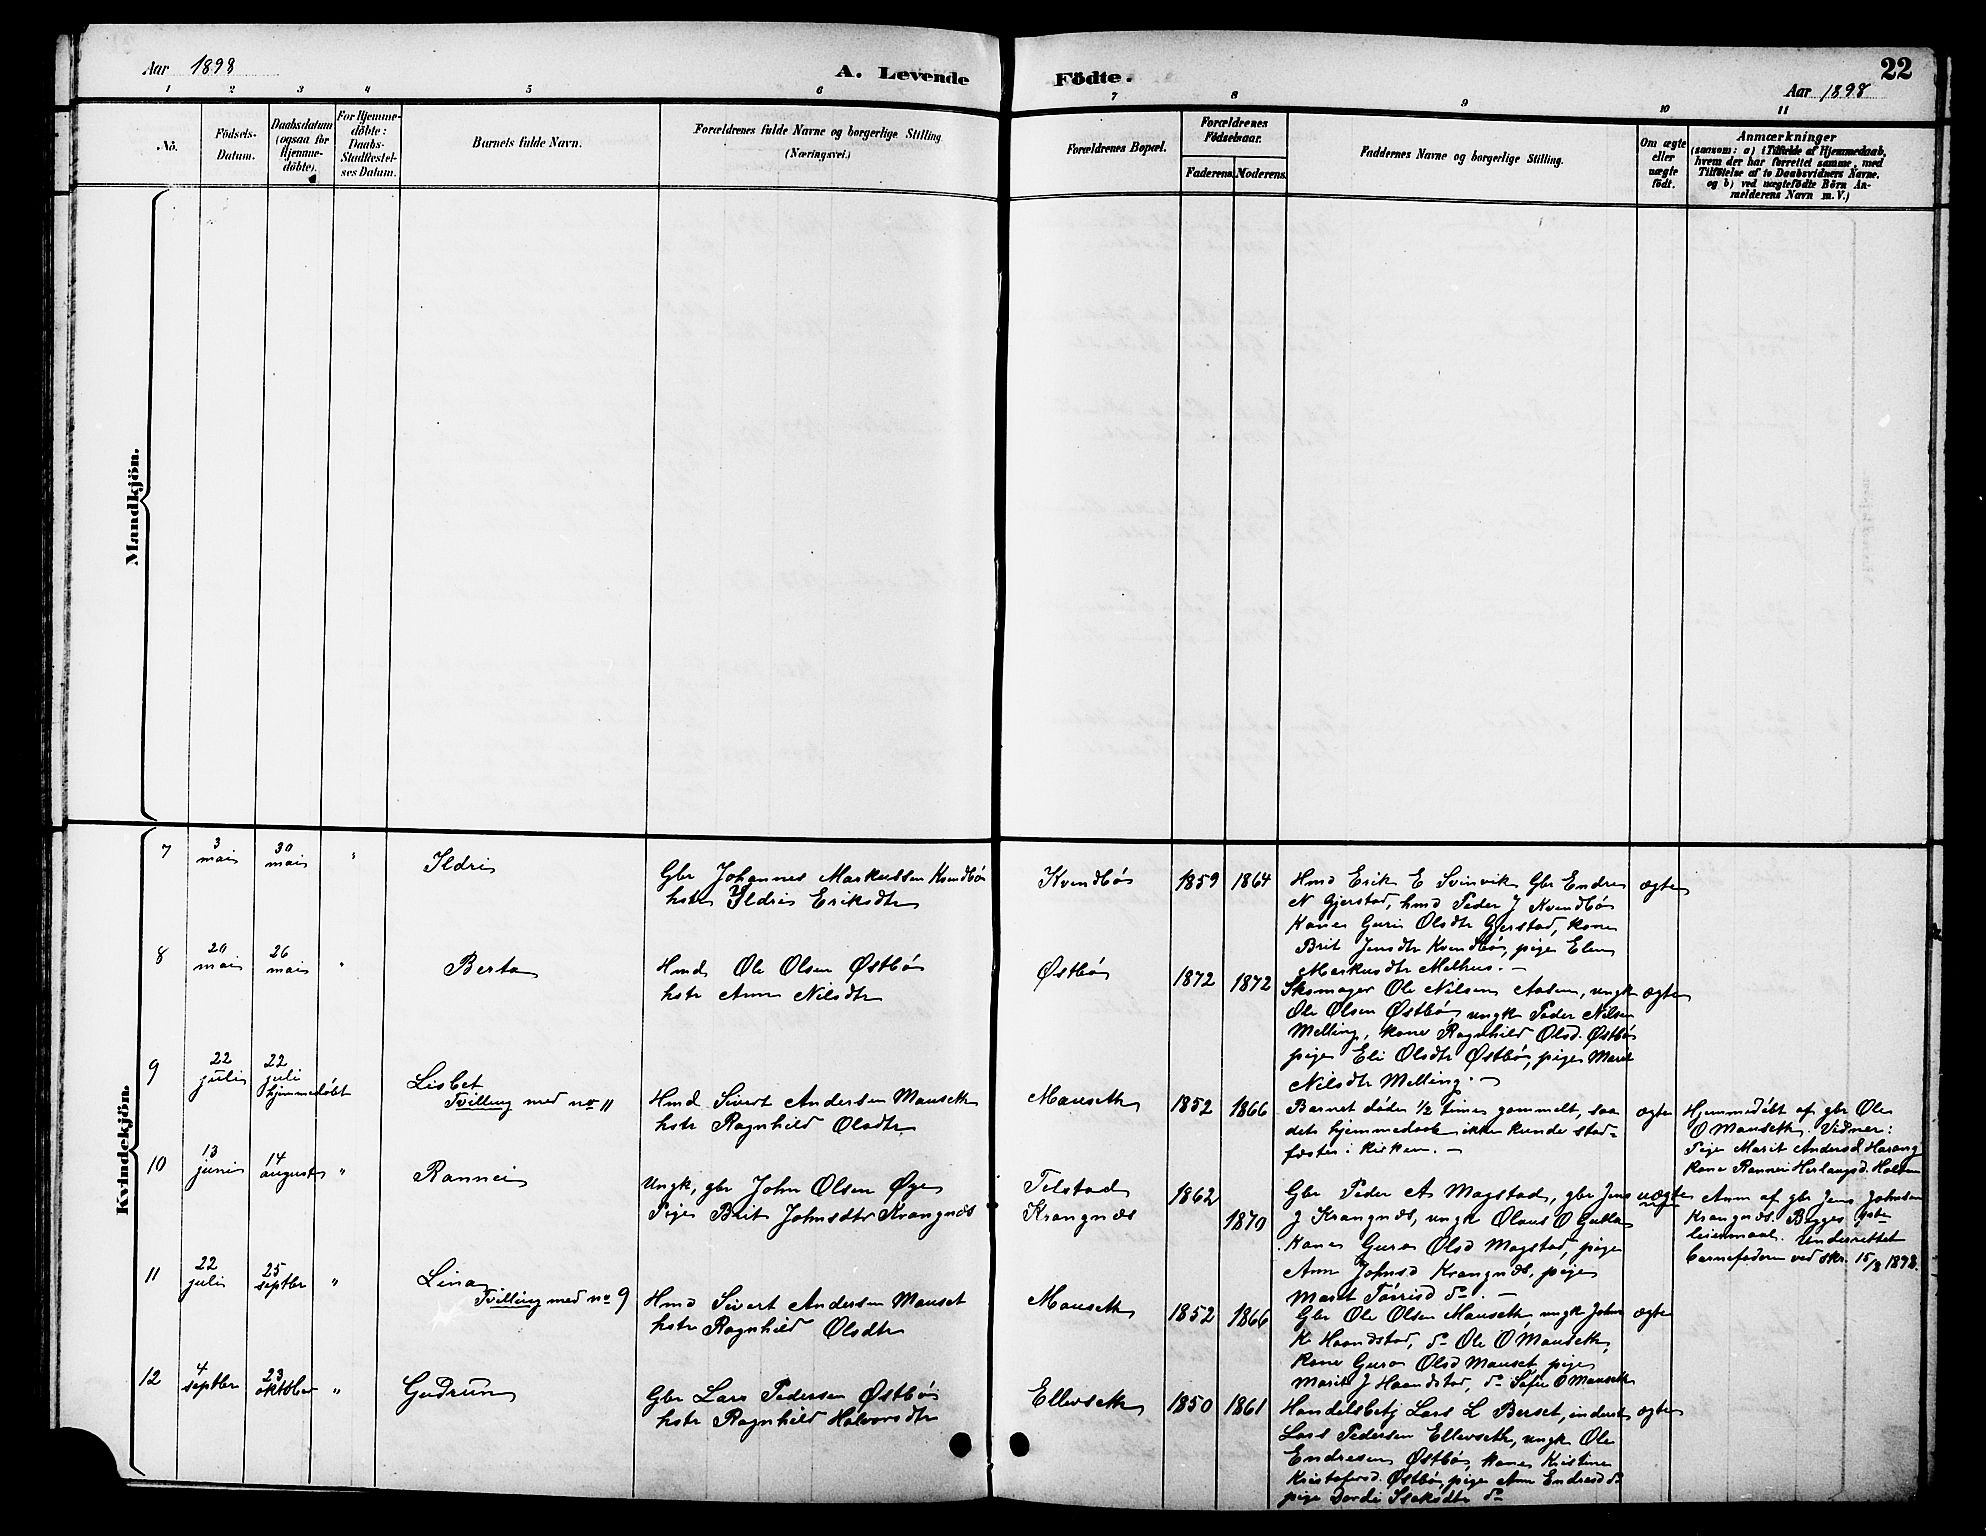 Aar 1898
A. Levende
Födte.
22
Aar 1898
1 2 3 4 5 6 7 8 9 10 11
No.
Födsels-
Datum.
Daabsdatum
(ogsaa for
Hjemme-
döbte).
For Hjemme-
döbte:
Daabs-
Stadfæstel-
ses Datum.
Barnets fulde Navn.
Forældrenes fulde Navne og borgerlige Stilling
(Næringsvei.)
Forældrenes Bopæl.
Forældrenes
Födselsaar.
Faderens. Moderens.
Faddernes Navne og borgerlige Stilling.
Om ægte
eller
uægte
födt.
Anmærkninger
(saasom: a) i Tilfælde af Hjemmedaab,
hvem der har forrettet samme, med
Tilföielse af to Daabsvidners Navne,
og b) ved uægtefödte Börn An-
melderens Navn m. V.)
Mandkjön.
Kvindekjön.
7
3
mai
30
mai
"
Ildri
Gbr Johannes Markussen Kvendbö
hstr Ildri Eriksdtr
Kvendbö
1859 1864
Hmd Erik E Svinvik, Gbr Endre
N Gjerstad, hmd Peder J Kvendbö
Kone Guri Olsdtr Gjerstad, kone
Brit Jensdtr Kvendbö, pige Elen
Markusdtr Melhus. –
ægte
8
20
mai
26
mai
"
Berta
Hmd Ole Olsen Østbö
hstr Ann Nilsdtr
Østbö
1872 1872
Skomager Ole Nilsen Aasen, ungk
Ole Olsen Østbö, ungk Peder Nilsen
Melling, kone Ragnhild Olsd. Østbö
pige Eli Olsdtr Østbö, pige Marit
Nilsdtr Melling. –
ægte
9
22
juli
22
juli
hjemmedöbt
Lisbet
Tvilling med no 11
Hmd Sivert Andersen Mauseth
hstr Ragnhild Olsdtr
Mauseth
1852 1866
Barnet döde 1/2 time gammelt, saa
dets hjemmedaab ikke kunde stad-
fæstes i kirken. –
ægte
Hjemmedöbt af gbr Ole
O Mauseth. Vidner:
Pige Marit Andersd Harang
Kone Rannei Herlaugsd. Holten
10
13
juni
14
august
"
Rannei
Ungk, gbr John Olsen Øye
Pige Brit Johnsdtr Krangnæs
Telstad
Krangnæs
1862
1870
Gbr Peder A Magstad, gbr Jens
J Krangnæs, ungk Olaus O Gulla
Kone Guro Olsd Magstad, pige
Ann Johnsd Krangnæs, pige
Marit Tørrisd do. –
uægte
Anm af gbr Jens Johnsen
Krangnæs. Begges
leiermaal. Underrettet
barnefaderen ved skr. 15/8 1898.
11
22
juli
25
septbr
"
Lina
Tvilling med no 9
Hmd Sivert Andersen Mauset
hstr Ragnhild Olsdtr
Mauseth
1852 1866
Gbr Ole Olsen Mauseth, ungk John
K Haandstad, do Ole O Mauseth,
Kone Guro Olsd Mauset, pige
Marit J Haandstad, do Sofie O Mauseth
ægte
12
4
septbr
23
oktober
"
Gudrun
Gbr Lars Pedersen Østbö
hstr Ragnhild Halvorsdtr
Ellevseth
1850 1861
Handelsbetj Lars L Berset, inderst
Lars Pedersen Ellevseth, ungk Ole
Endresen Østbö, kone Kristine
Kristofersd. Østbö, pige Ann Endresd do
pige Dordi Isaksdtr do
ægte